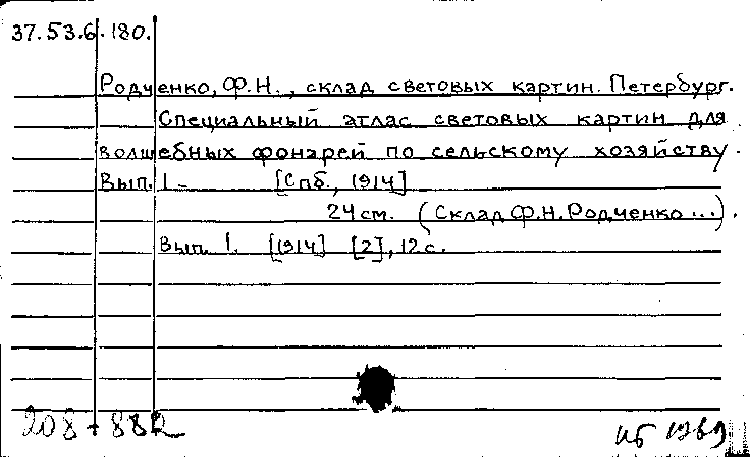 37.53.6.180.
Родченко, Ф.Н., склад световых картин. Петербург.
Специальный атлас световых картин для
волшебных фонарей по сельскому хозяйству.
Вып. 1 - [Спб., 1914]
24 см. (Склад Ф.Н. Родченко ...).
Вып. 1. [1914] [2], 12 с.
208 + 88
иб 1969